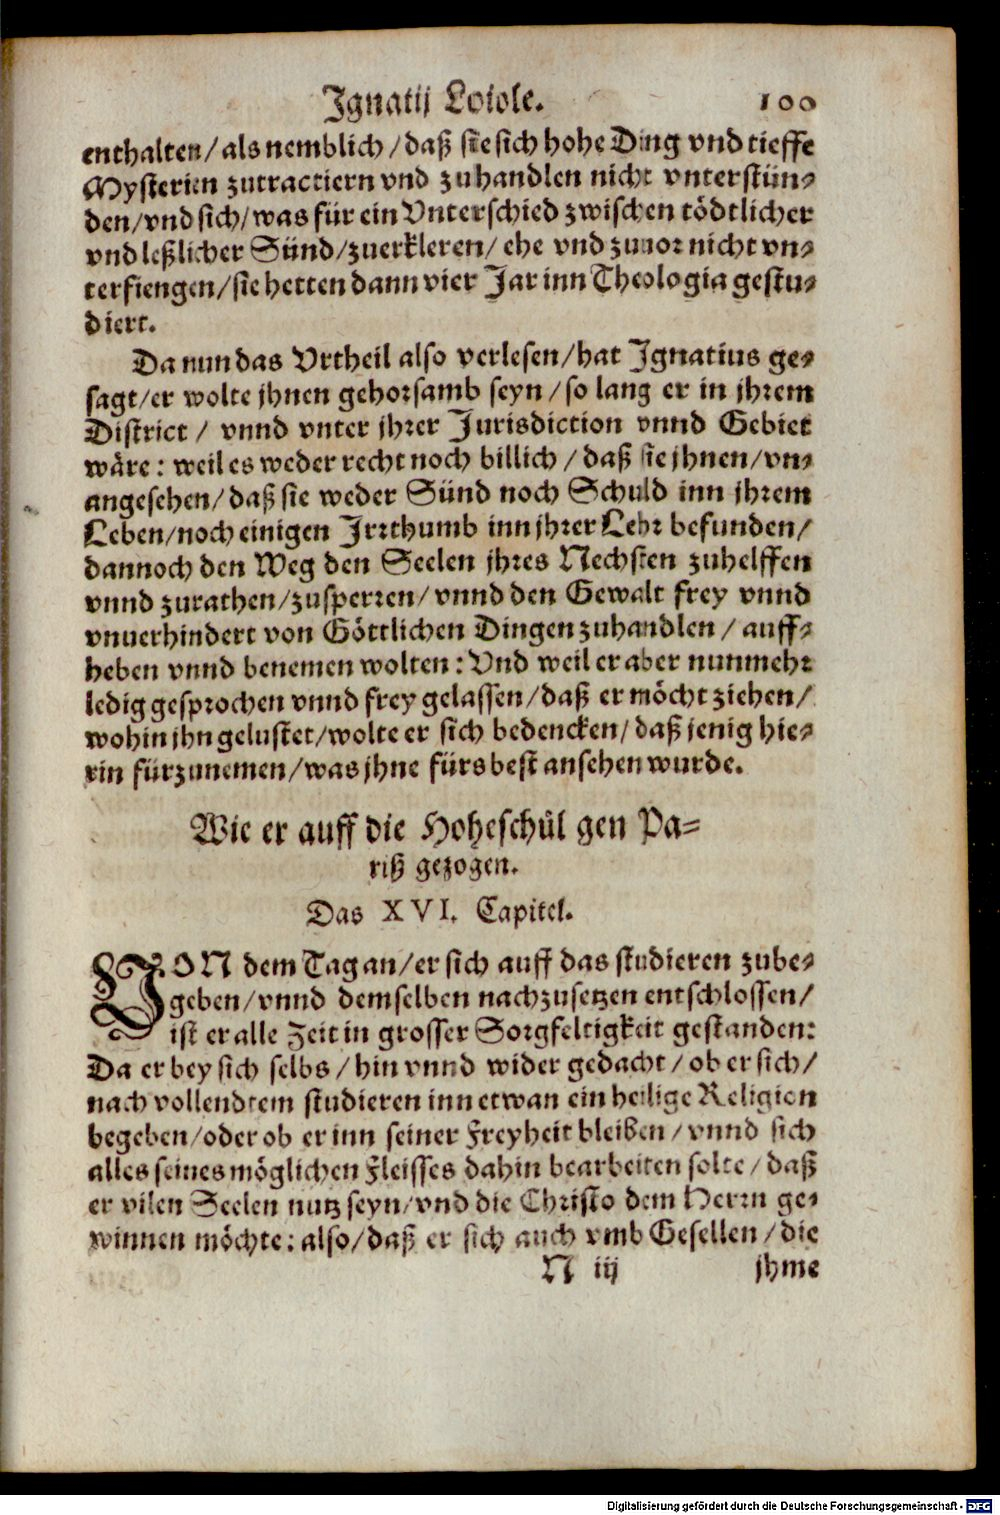 Ignatij Loiole. 100
enthalten/als nemblich/daß sie sich hohe Ding vnd tieffe
Mysterien zutractiern vnd zuhandlen nicht vnterstün⸗
den/vnd sich/was für ein Vnterschied zwischen tödtlicher
vnd leßlicher Sünd/zuerkleren/ ehe vnd zuuor nicht vn⸗
terfiengen/sie hetten dann vier Jar inn Theologia gestu⸗
diert.
Da nun das Vrtheil also verlesen/hat Ignatius ge⸗
sagt/er wolte jhnen gehorsamb seyn/so lang er in jhrem
District/ vnnd vnter jhrer Jurisdiction vnnd Gebiet
wäre: weil es weder recht noch billich/daß sie jhnen/vn⸗
angesehen/daß sie weder Sünd noch Schuld inn jhrem
Leben/noch einigen Irrthumb inn jhrer Lehr befunden/
dannoch den Weg den Seelen jhres Nechsten zuhelffen
vnnd zurathen/zusperren/vnnd den Gewalt frey vnnd
vnuerhindert von Göttlichen Dingen zuhandlen/auff⸗
heben vnnd benemen wolten: Vnd weil er aber nunmehr
ledig gesprochen vnnd frey gelassen/daß er möcht ziehen/
wohin jhn gelustet/wolte er sich bedencken/daß jenig hie⸗
rin fürzunemen/was jhne fürs best ansehen wurde.
Wie er auff die Hoheschůl gen Pa⸗
riß gezogen.
Das XVI. Capitel.
VON dem Tag an/er sich auff das studieren zube⸗
geben/vnnd demselben nachzusetzen entschlossen/
ist er alle Zeit in grosser Sorgfeltigkeit gestanden:
Da er bey sich selbs/hin vnnd wider gedacht/ob er sich/
nach vollendtem studieren inn etwan ein heilige Religion
begeben/oder ob er inn seiner Freyheit bleiben/vnnd sich
alles seines möglichen Fleisses dahin bearbeiten solte/daß
er vilen Seelen nutz seyn/vnd die Christo dem Herrn ge⸗
winnen möchte: also/daß er sich auch vmb Gesellen/die
N iij jhme
Digitalisierung gefördert durch die Deutsche Forschungsgemeinschaft - DFG